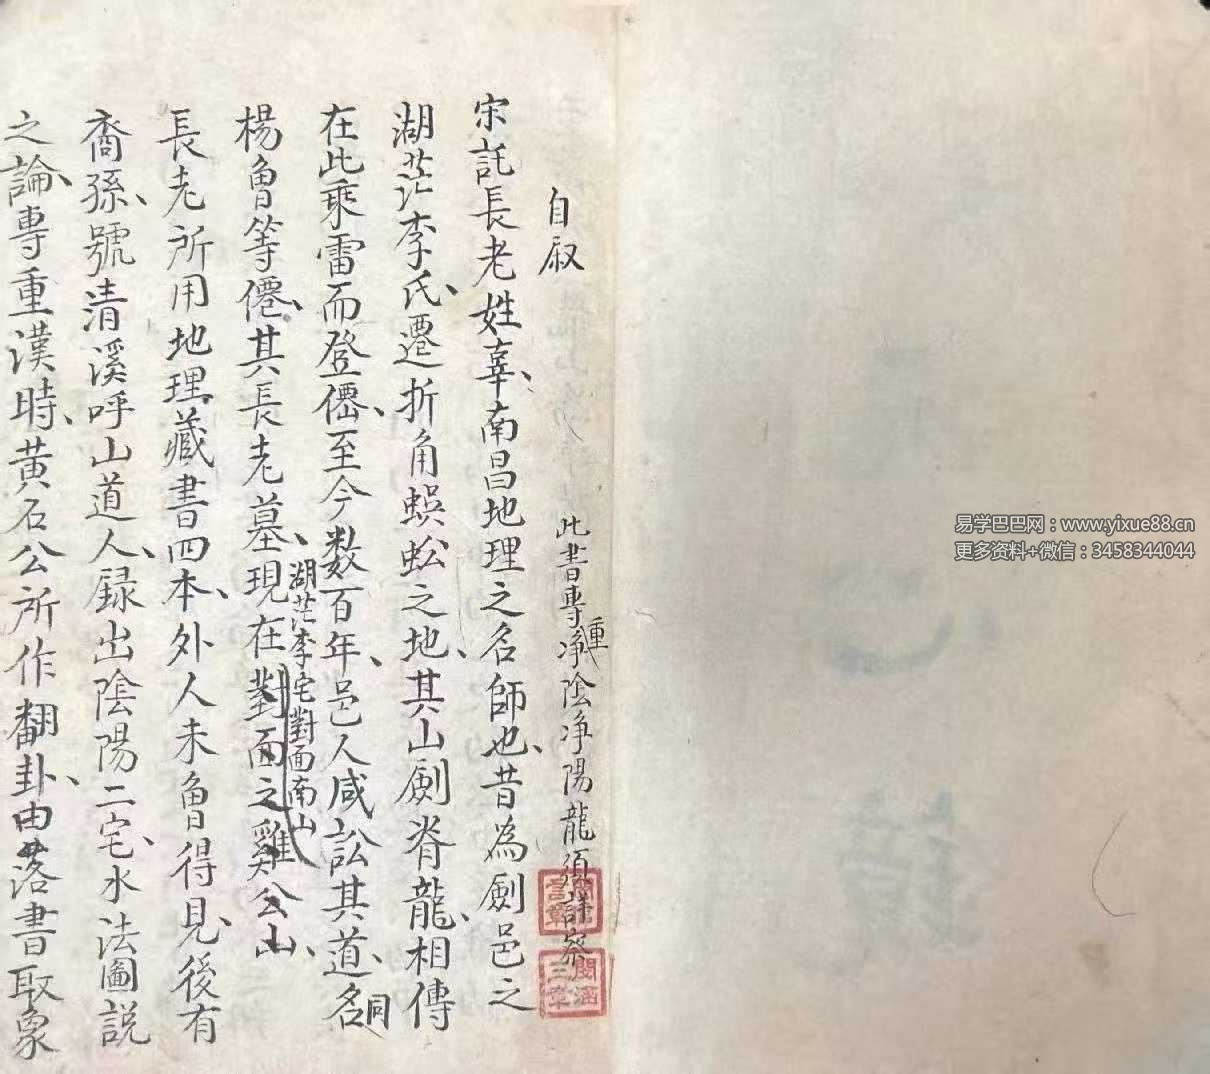 自叙
此書專重淨陰淨陽龍須詳察
宋託長老姓辜南昌地理之名師也昔為劍邑之
湖茫李氏遷折角蜈蚣之地其山劍脊龍相傳
在此乘雷而登僊至今数百年邑人咸訟其道名同
楊魯等僊其長老墓現在對面之雞公山
湖茫李宅對面南山
長老所用地理藏書四本外人未魯得見後有
裔孫號清溪呼山道人録出陰陽二宅水法圖説
之論專重漢時黄石公所作翻卦由落書取象
易学巴巴网：www.yixue88.cn
更多资料+微信：3458344044